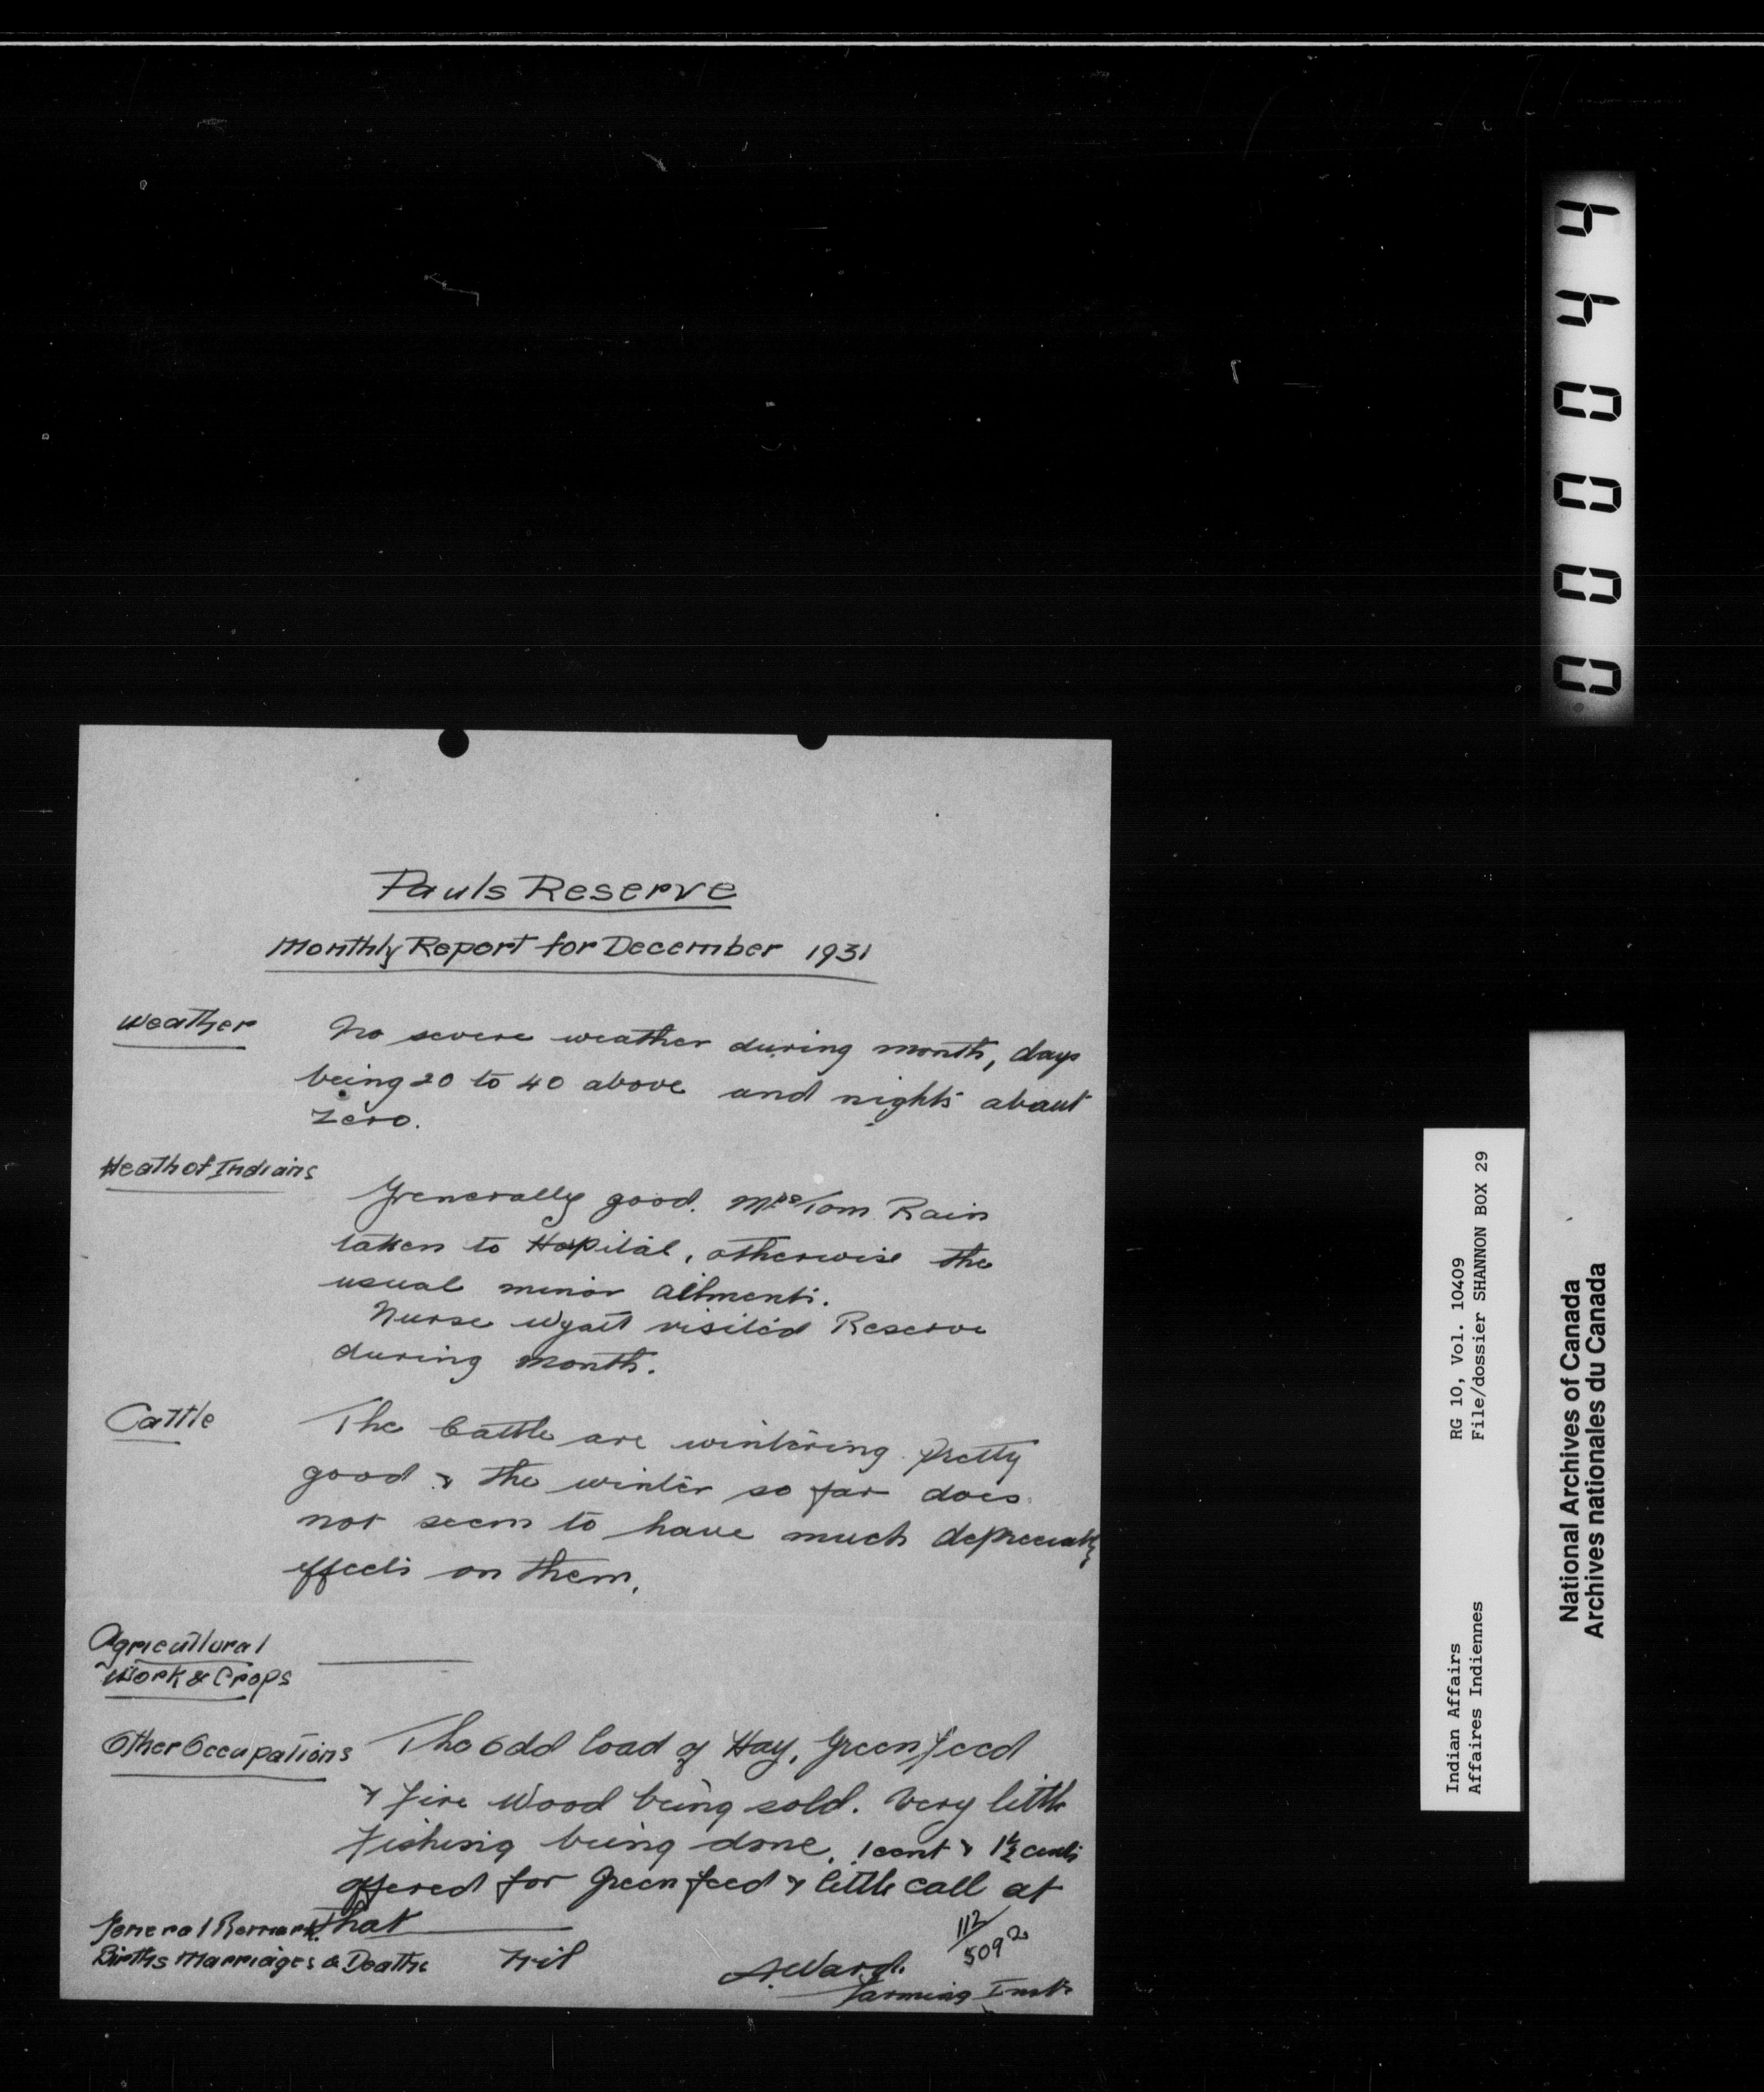 Pauls Reserve
Monthly Report for December 1931
Weather No severe weather during month, days
being 20 to 40 above and nights about
zero.
Heath of Indians
Generally good. Mrs Tom Rain
taken to Hospital, otherwise the
usual minor ailments.
Nurse Wyatt visited Reserve
during month.
Cattle The Cattle are wintering pretty
good & the winter so far does
not seem to have much
effects on them.
Agricultural
Work & Crops
Other Occupations The odd load of Hay, Green feed
& Fire Wood being sold. Very little
Fishing being done. 1 cent & 1 1/2 cents
offered for Green feed & little call at
that
General Remarks
Births Marriages & Deaths Nil
112/5092
A. Ward.
Farming Inst.
440000
RG 10, Vol. 10409
File/dossier SHANNON BOX 29
Indian Affairs
Affaires Indiennes
National Archives of Canada
Archives nationales du Canada